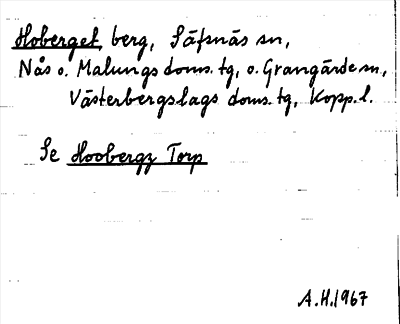 Hoberget, berg, Säfsnäs sn,
Nås o. Malungs doms. tg, o. Grangärde sn,
Västerbergslags doms. tg, Kopp. l.
Se Hoobergz Torp
A.H. 1967